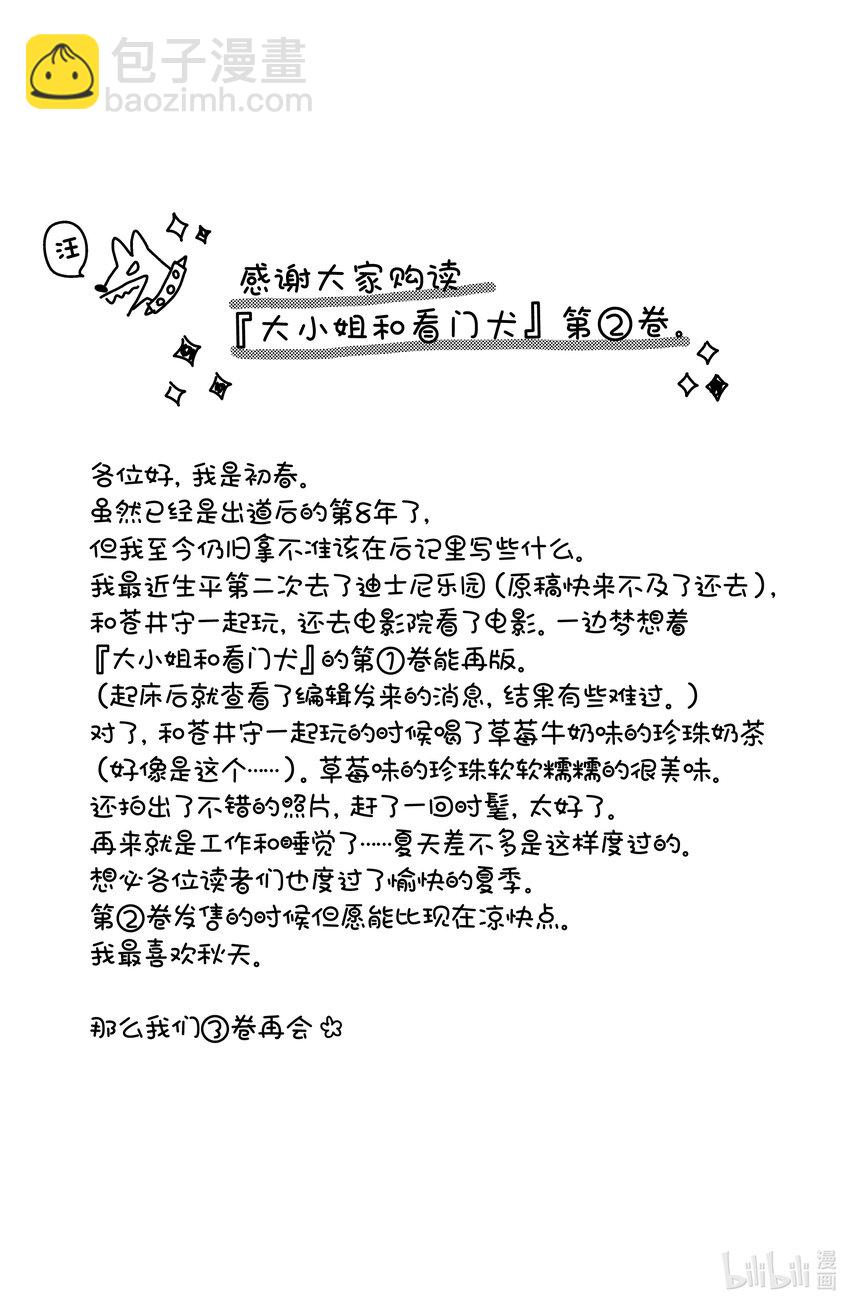 包子漫畫
baozimh.com
汪
感谢大家购读
『大小姐和看门犬』第②卷。
各位好，我是初春。
虽然已经是出道后的第8年了，
但我至今仍旧拿不准该在后记里写些什么。
我最近生平第二次去了迪士尼乐园（原稿快来不及了还去），
和苍井守一起玩，还去电影院看了电影。一边梦想着
『大小姐和看门犬』的第①卷能再版。
（起床后就查看了编辑发来的消息，结果有些难过。）
对了，和苍井守一起玩的时候喝了草莓牛奶味的珍珠奶茶
（好像是这个……）。草莓味的珍珠软软糯糯的很美味。
还拍出了不错的照片，赶了一回时髦，太好了。
再来就是工作和睡觉了……夏天差不多是这样度过的。
想必各位读者们也度过了愉快的夏季。
第②卷发售的时候但愿能比现在凉快点。
我最喜欢秋天。
那么我们③卷再会
bilibili漫画